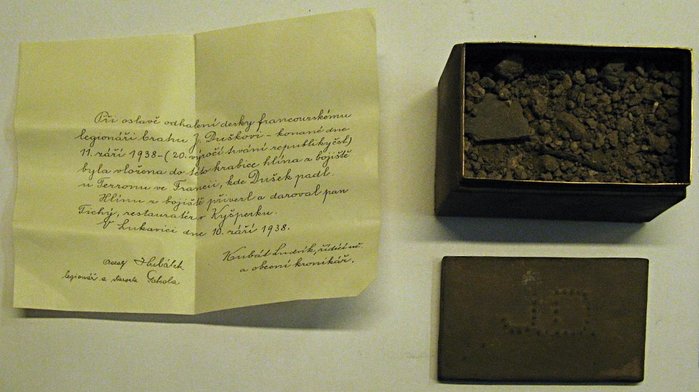 Při oslavě odhalení desky francouzskému
legionáři bratru J. Duškovi - konané dne
11. září 1938 - (20. výročí trvání republiky čsl)
byla vložena do této krabice hlína z bojiště
u Terronu ve Francii, kde Dušek padl.
Hlínu z bojiště přivezl a daroval pan
Tichý, restauratér v Kyšperku.
V Lukavici dne 10. září 1938.
Kubát Ludvík, řídící uč.
a obecní kronikář.
Josef Hubálek
legionář a starosta Sokola
J D